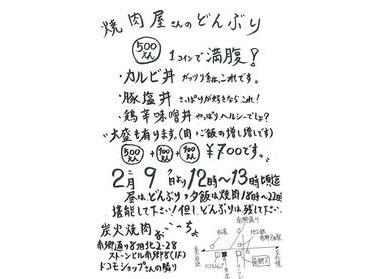 焼肉屋さんのどんぶり
500えん 1コインで満腹?
・カルビ丼 ガッツリ系は、これです。
・豚塩丼 さっぱりが好きならこれ!
・鶏辛味噌丼 やっぱりヘルシーでしょ?
大盛も有ります。(肉、ご飯の増し増しです)
500えん+100えん+100えん ¥700です。
12時〜13時
昼は、どんぶり♪夕飯は焼肉18時〜22時
堪能して下さい!但し、どんぶりは残して下さい。
炭火焼肉
南郷通り8丁目北2-28
ストーンビル南郷8(1F)
ドコモショップさんの隣り
南郷通り